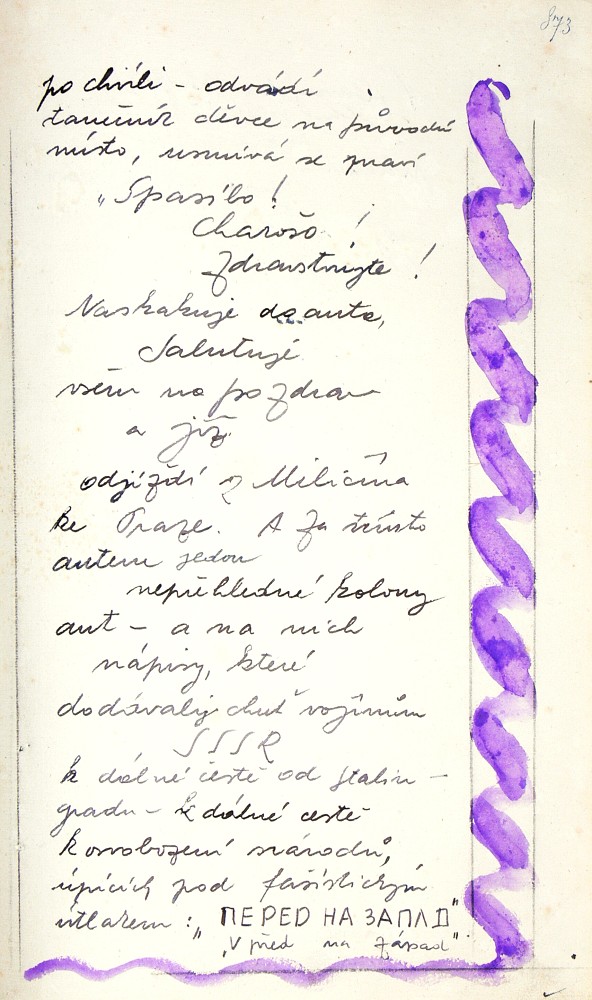 873
po chvíli - odvádí
tanečnic děvce na původní
místo, usmívá se praví
„Spasíbo!
Charošo!
Zdravstvujte!
Naskakuje do auta,
Salutuje
všem na pozdrav
a již
odjíždí z Miličína
ke Praze. A za tímto
autem jedou
nepřehledné kolony
aut - a na nich
nápisy, které
dodávaly chuť vojínům
SSSR
k dálné cestě od Stalin-
gradu - k dálné cestě
k osvobození národů,
úpících pod fašistickým
útlakem: „ПЕРЕД НА ЗАПАД"
„V před na západ"